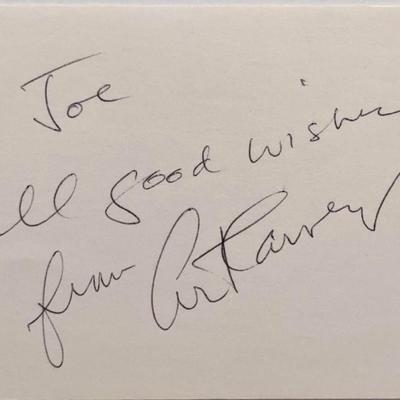 Joe
All good wishes
from Art Carney